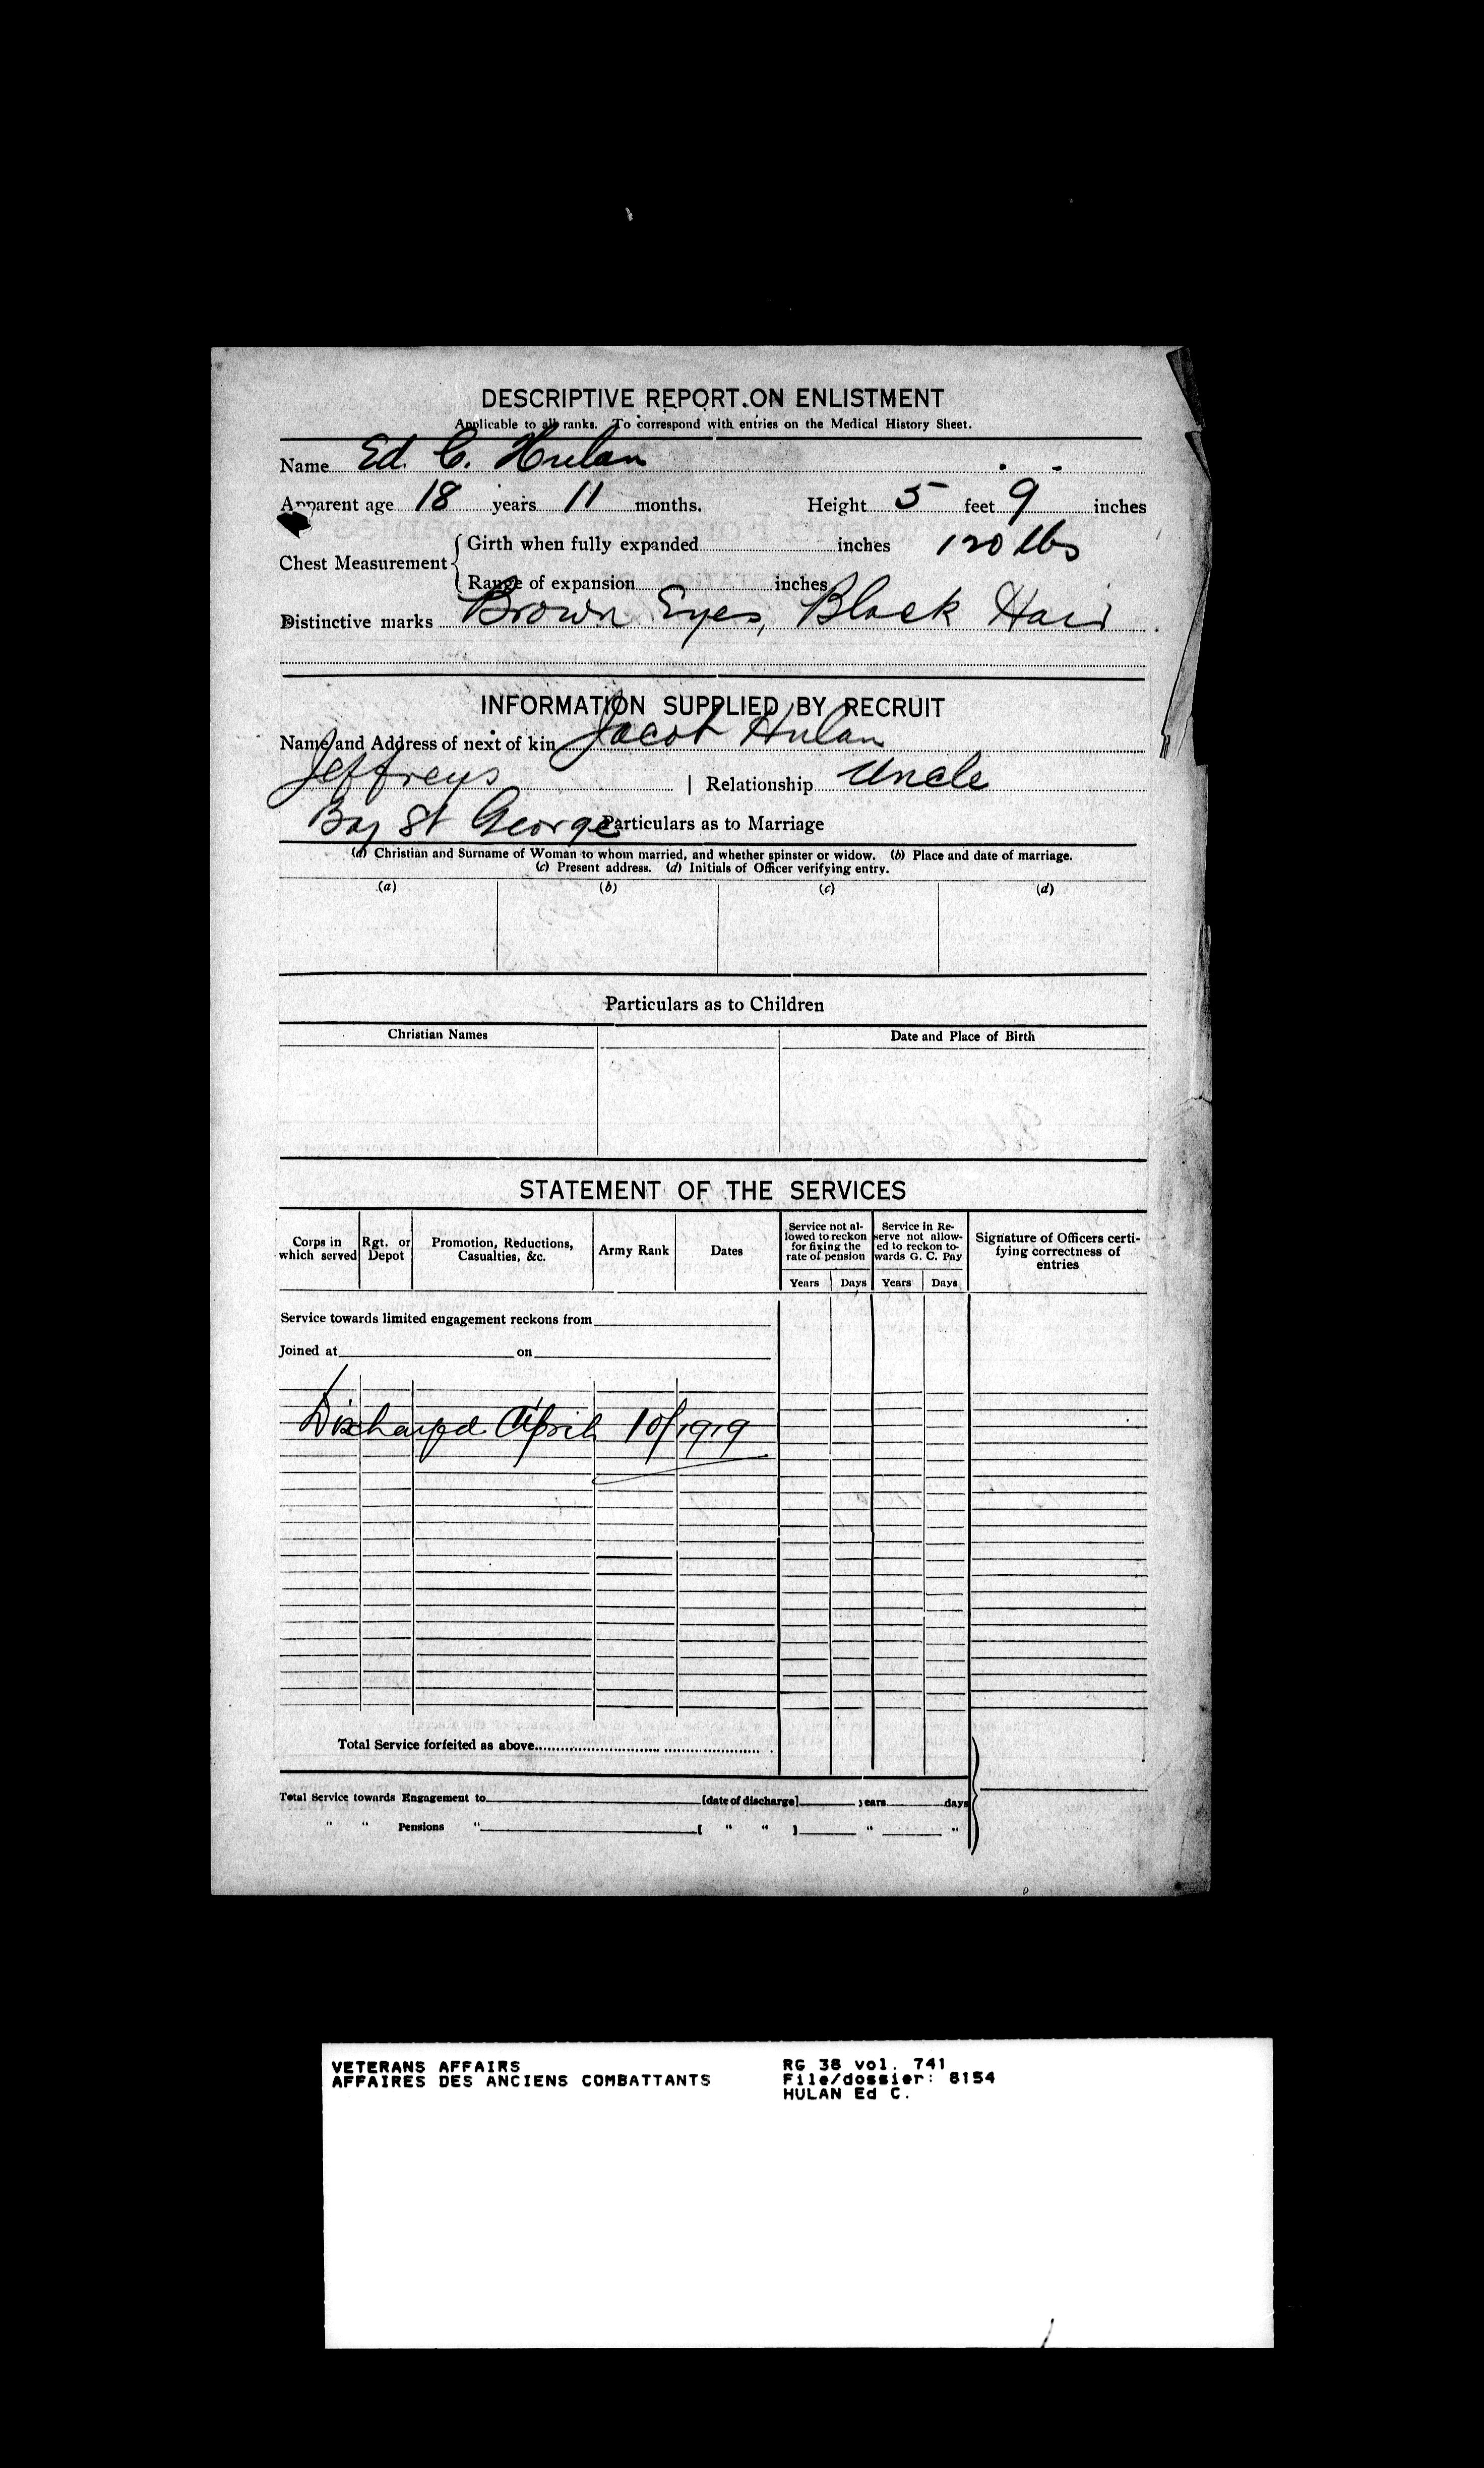 DESCRIPTIVE REPORT ON ENLISTMENT
Applicable to all ranks. To correspond with entries on the Medical History Sheet.
Name Ed. C. Hulan
Apparent age 18 years 11 months. Height 5 feet 9 inches
Girth when fully expanded inches 120 lbs
Chest Measurement
Range of expansion inches
Distinctive marks Brown Eyes, Black Hair
INFORMATION SUPPLIED BY RECRUIT
Name and Address of next of kin Jacob Hulan
Jeffreys | Relationship Uncle
Bay St George Particulars as to Marriage
(a) Christian and Surname of Woman to whom married, and whether spinster or widow. (b) Place and date of marriage.
(c) Present address. (d) Initials of Officer verifying entry.
(a) (b) (c) (d)
Particulars as to Children
Christian Names Date and Place of Birth
STATEMENT OF THE SERVICES
Corps in which served Rgt. or Depot Promotion, Reductions, Casualties, &c. Army Rank Dates Service not allowed to reckon for fixing the rate of pension Service in Reserve not allowed to reckon towards G. C. Pay Signature of Officers certifying correctness of entries
Years Days Years Days
Service towards limited engagement reckons from
Joined at on
Discharged April 10/1919
Total Service forfeited as above
Total Service towards Engagement to [date of discharge] years days
" " Pensions " [ " " ] " "
VETERANS AFFAIRS RG 38 vol. 741
AFFAIRES DES ANCIENS COMBATTANTS File/dossier: 8154
HULAN Ed C.